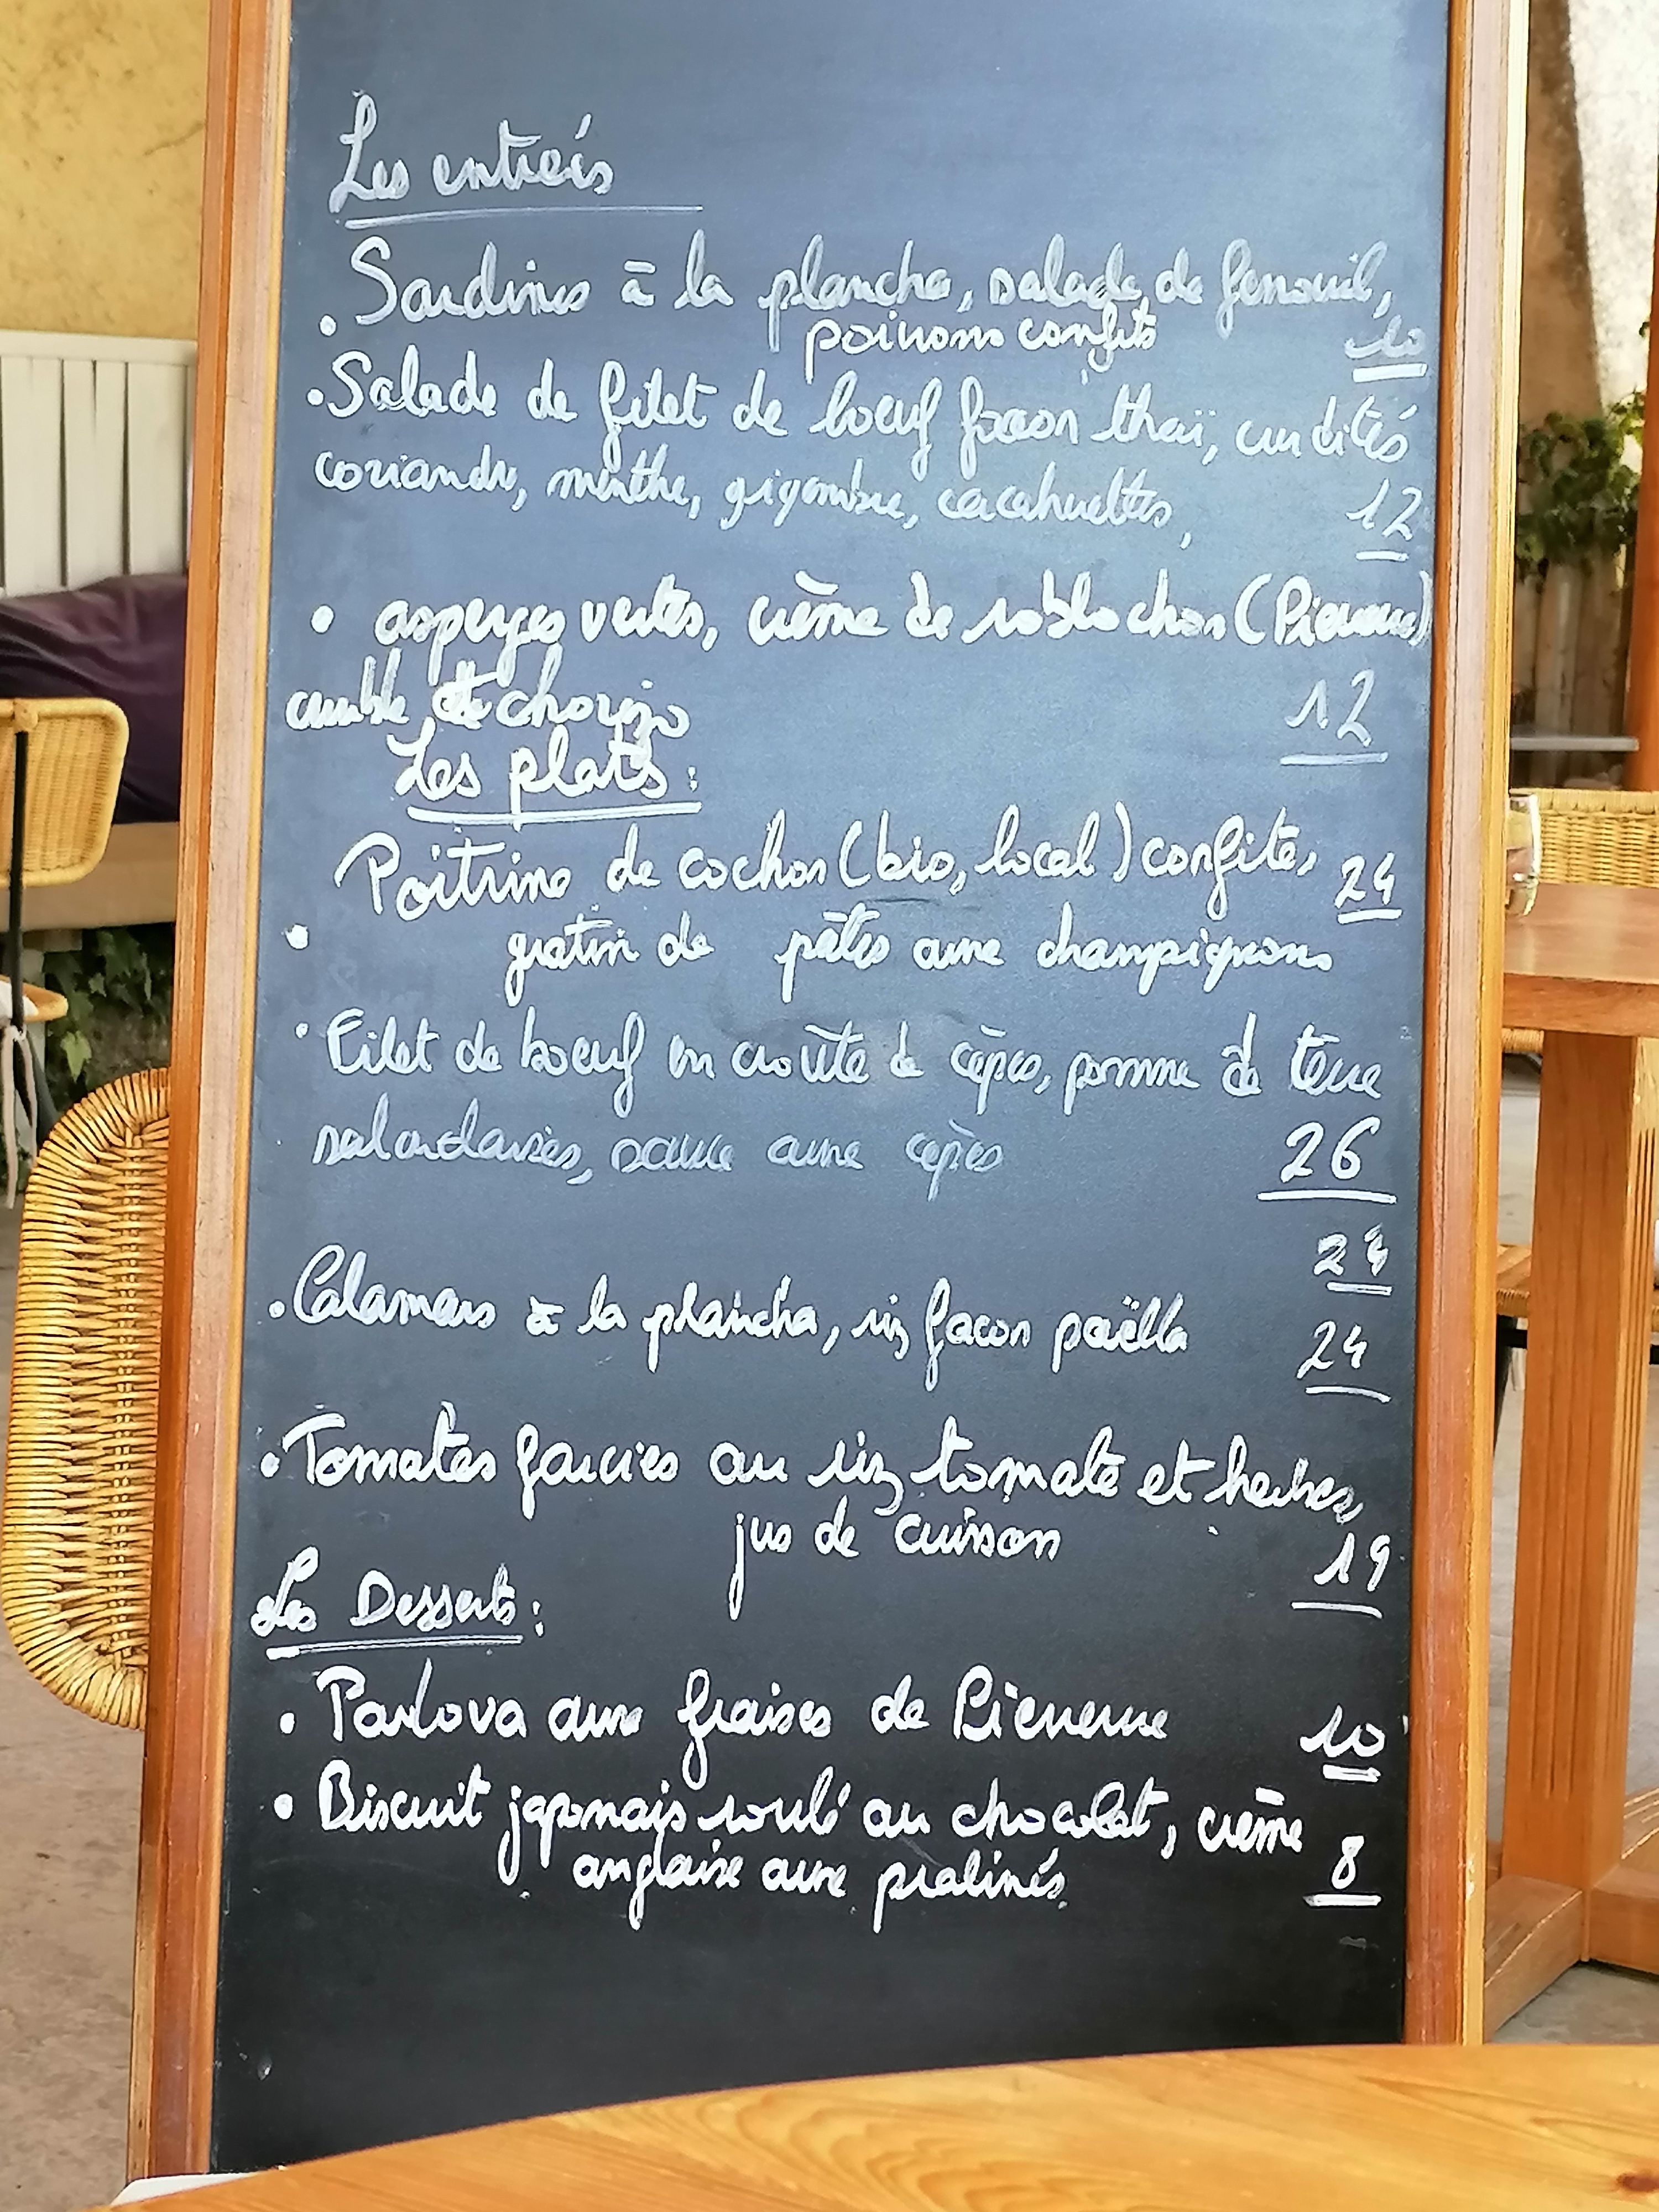 Les entrées
• Sardines à la plancha, salade de fenouil,
poivrons confits 10
• Salade de filet de boeuf façon thaï, crudités
coriandre, menthe, gigembre, cacahuettes, 12
• asperges vertes, crème de roblochon (Pierevere)
crumble de chorizo 12
Les plats :
• Poitrine de cochon (bio, local) confite, 24
gratin de pâtes aux champignons
• Filet de boeuf en croûte de cèpes, pomme de terre
salardaises, sauce aux cèpes 26
24
• Calamars à la plancha, riz façon paëlla 24
• Tomates farcies au riz tomate et herbes,
jus de cuisson 19
Les Desserts :
• Pavlova aux fraises de
10
• Biscuit japonais roulé au chocolat, crème
anglaise aux pralinés 8